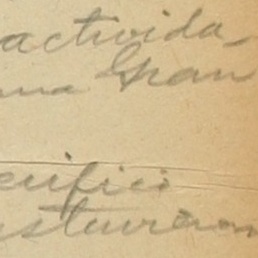 activida
una Gran
cificio
stauraron